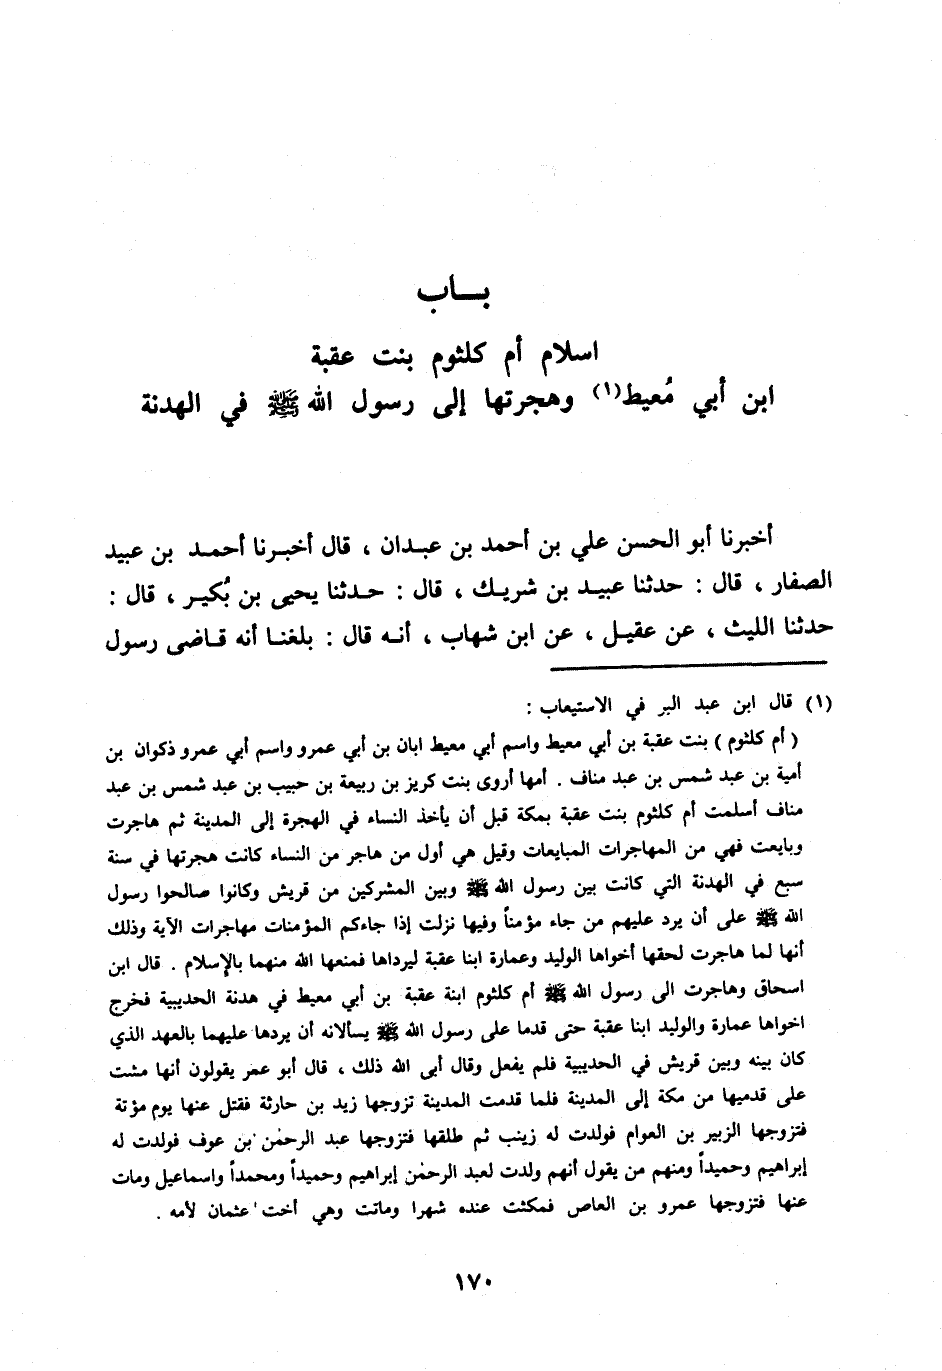 بـــاب
اسلام أم كلثوم بنت عقبة
ابن أبي مُعيط(١) وهجرتها إلى رسول الله ﷺ في الهدنة
أخبرنا أبو الحسن علي بن أحمد بن عبـدان ، قال أخبـرنا أحمـد بن عبيد
الصفار ، قال : حدثنا عبيـد بن شريـك ، قال : حـدثنا يحيى بن بُكيـر ، قال :
حدثنا الليث ، عن عقيـل ، عن ابن شهاب ، أنـه قال : بلغنـا أنه قـاضى رسول
(١) قال ابن عبد البر في الاستيعاب :
( أم كلثوم ) بنت عقبة بن أبي معيط واسم أبي معيط ابان بن أبي عمرو واسم أبي عمرو ذكوان بن
أمية بن عبد شمس بن عبد مناف . أمها أروى بنت كريز بن ربيعة بن حبيب بن عبد شمس بن عبد
مناف أسلمت أم كلثوم بنت عقبة بمكة قبل أن يأخذ النساء في الهجرة إلى المدينة ثم هاجرت
وبايعت فهي من المهاجرات المبايعات وقيل هي أول من هاجر من النساء كانت هجرتها في سنة
سبع في الهدنة التي كانت بين رسول الله ﷺ وبين المشركين من قريش وكانوا صالحوا رسول
الله ﷺ على أن يرد عليهم من جاء مؤمناً وفيها نزلت إذا جاءكم المؤمنات مهاجرات الآية وذلك
أنها لما هاجرت لحقها أخواها الوليد وعمارة ابنا عقبة ليرداها فمنعها الله منهما بالإسلام . قال ابن
اسحاق وهاجرت الى رسول الله ﷺ أم كلثوم ابنة عقبة بن أبي معيط في هدنة الحديبية فخرج
اخواها عمارة والوليد ابنا عقبة حتى قدما على رسول الله ﷺ يسألانه أن يردها عليهما بالعهد الذي
كان بينه وبين قريش في الحديبية فلم يفعل وقال أبى الله ذلك ، قال أبو عمر يقولون أنها مشت
على قدميها من مكة إلى المدينة فلما قدمت المدينة تزوجها زيد بن حارثة فقتل عنها يوم مؤتة
فتزوجها الزبير بن العوام فولدت له زينب ثم طلقها فتزوجها عبد الرحمٰن بن عوف فولدت له
إبراهيم وحميداً ومنهم من يقول أنهم ولدت لعبد الرحمٰن إبراهيم وحميداً ومحمداً واسماعيل ومات
عنها فتزوجها عمرو بن العاص فمكثت عنده شهرا وماتت وهي أخت عثمان لأمه .
١٧٠